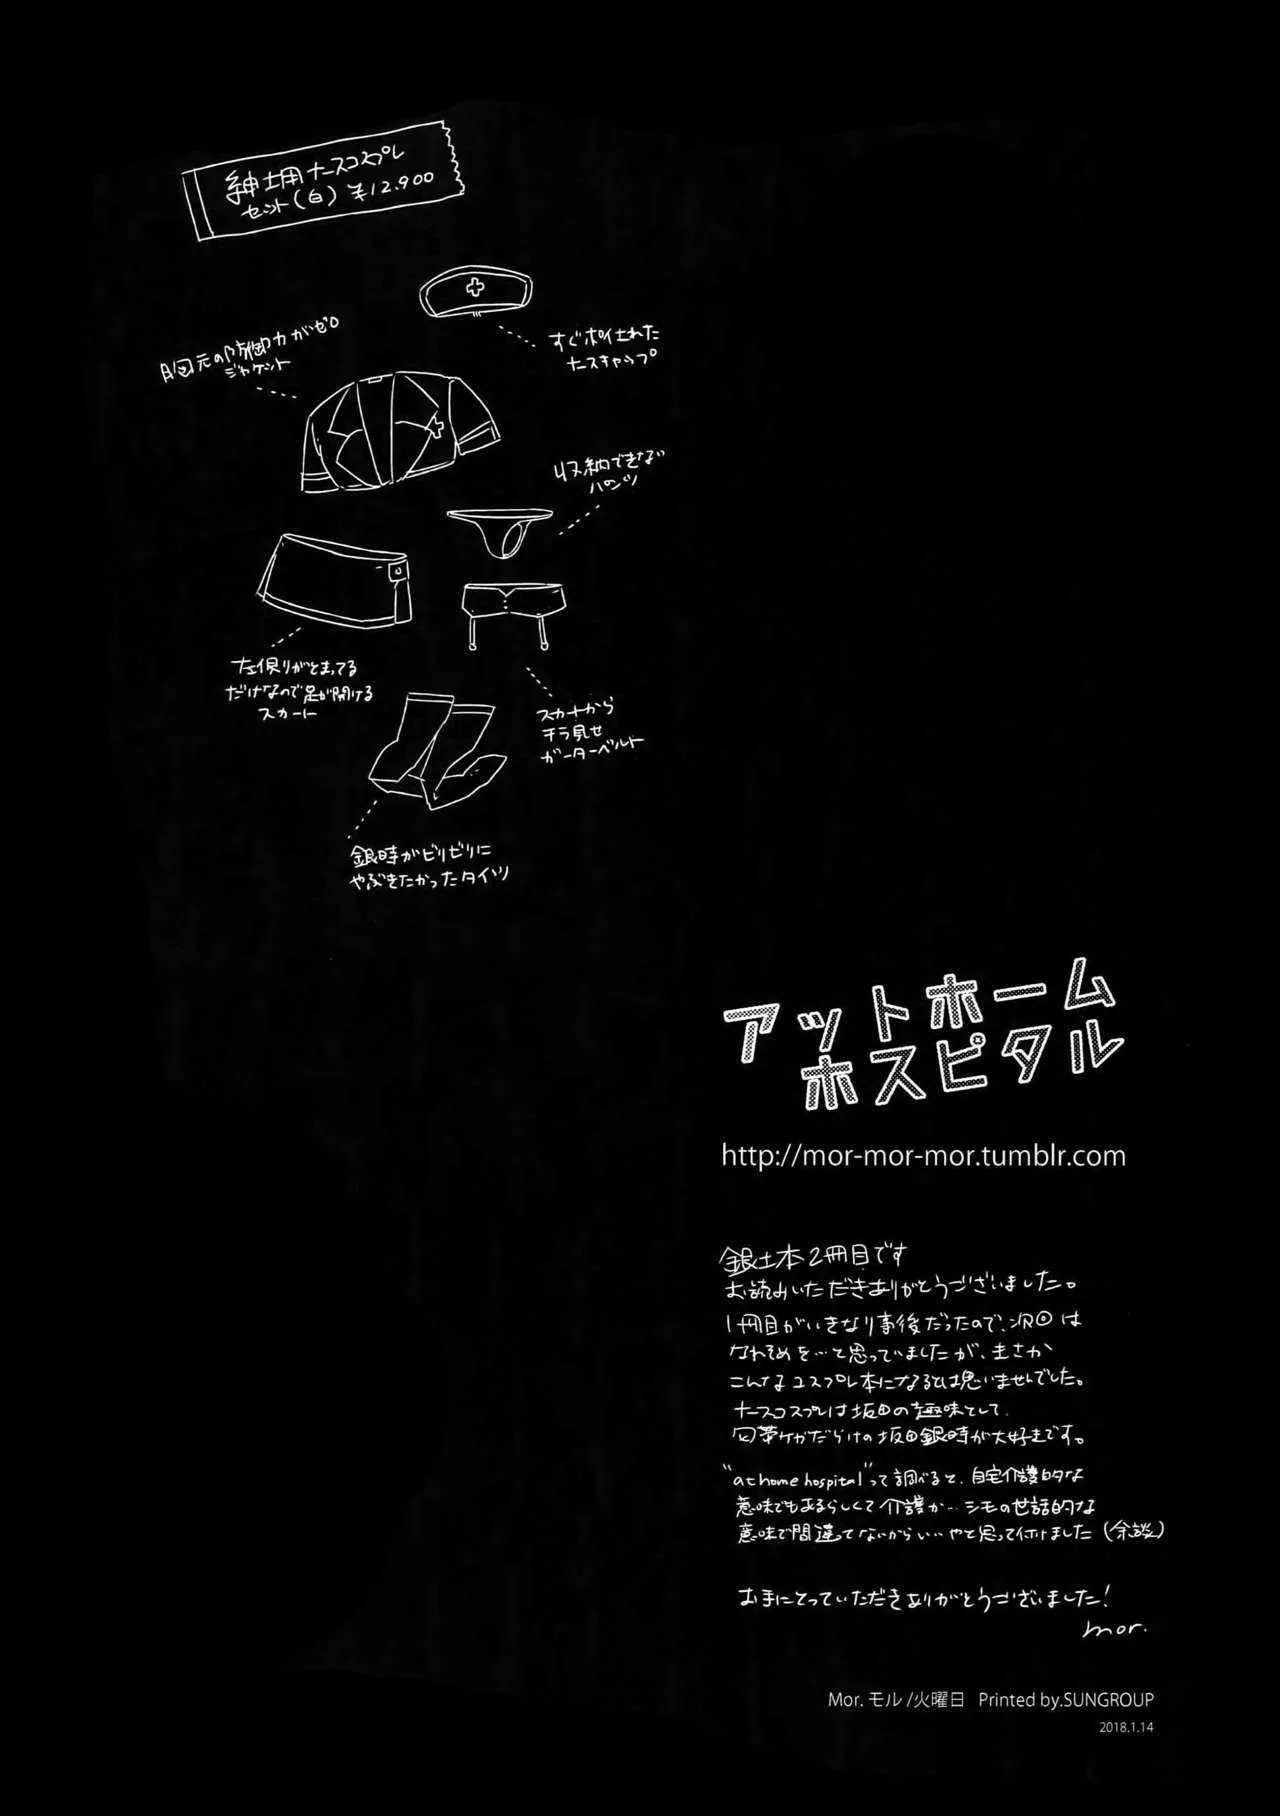 紳士用ナースコスプレ
セット(白) ¥12.900
すぐポイされた
ナースキャップ
胸元の防御力がゼロ
ジャケット
収納できない
パンツ
左側がとまってる
だけなので足が開ける
スカート
スカートから
チラ見せ
ガーターベルト
銀時がビリビリに
やぶきたかったタイツ
アットホーム
ホスピタル
http://mor-mor-mor.tumblr.com
銀土本2冊目です
お読みいただきありがとうございました。
1冊目がいきなり事後だったので、次回は
なれそめを…と思っていましたが、まさか
こんなコスプレ本になるとは思いませんでした。
ナースコスプレは坂田の趣味として、
包帯ケガだらけの坂田銀時が大好きです。
"at home hospital"って調べると、自宅介護的な
意味でもあるらしくて介護か…シモの世話的な
意味で間違ってないからいいやと思って付けました(余談)
お手にとっていただきありがとうございました!
mor.
Mor. モル/火曜日 Printed by.SUNGROUP
2018.1.14